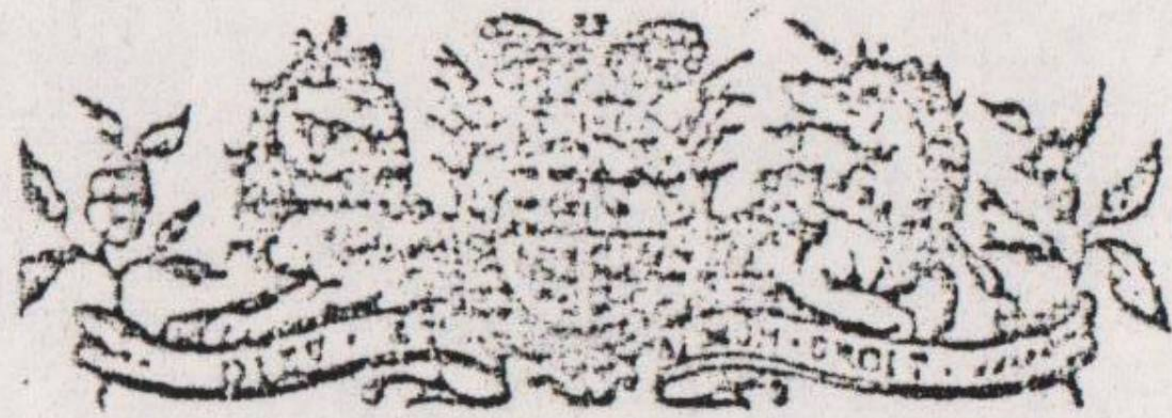 DIEU · ET MON · DROIT ·